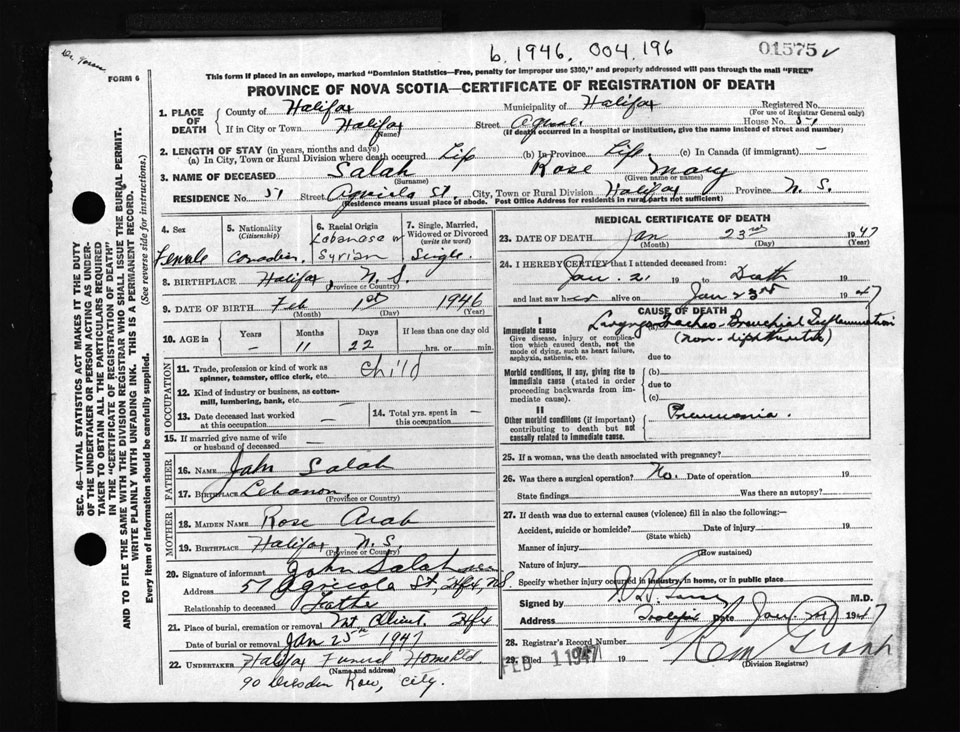 b. 1946. 004. 196
01575
FORM 6
This form if placed in an envelope, marked "Dominion Statistics—Free, penalty for improper use $300," and properly addressed will pass through the mail "FREE"
PROVINCE OF NOVA SCOTIA—CERTIFICATE OF REGISTRATION OF DEATH
SEC. 46—VITAL STATISTICS ACT MAKES IT THE DUTY
OF THE UNDERTAKER OR PERSON ACTING AS UNDER-
TAKER TO OBTAIN ALL THE PARTICULARS REQUIRED
IN THE "CERTIFICATE OF REGISTRATION OF DEATH"
AND TO FILE THE SAME WITH THE DIVISION REGISTRAR WHO SHALL ISSUE THE BURIAL PERMIT.
WRITE PLAINLY WITH UNFADING INK. THIS IS A PERMANENT RECORD.
Every item of information should be carefully supplied. (See reverse side for instructions.)
1. PLACE OF DEATH County of Halifax Municipality of Halifax Registered No.
(For use of Registrar General only)
If in City or Town Halifax Street House No. 51
(Name) (If death occurred in a hospital or institution, give the name instead of street and number)
2. LENGTH OF STAY (in years, months and days)
(a) In City, Town or Rural Division where death occurred Life (b) In Province Life (c) In Canada (if immigrant) —
3. NAME OF DECEASED Salah Rose Mary
(Surname) (Given name or names)
RESIDENCE No. 51 Street Agricola St City, Town or Rural Division Halifax Province N. S.
(Residence means usual place of abode. Post Office Address for residents in rural parts not sufficient)
4. Sex Female
5. Nationality (Citizenship) Canadian
6. Racial Origin Lebanese or Syrian
7. Single, Married, Widowed or Divorced (write the word) Single
8. BIRTHPLACE Halifax, N. S.
(Province or Country)
9. DATE OF BIRTH Feb 1st 1946
(Month) (Day) (Year)
10. AGE in Years Months 11 Days 22 If less than one day old hrs. or min.
OCCUPATION
11. Trade, profession or kind of work as spinner, teamster, office clerk, etc. child
12. Kind of industry or business, as cotton-mill, lumbering, bank, etc. —
13. Date deceased last worked at this occupation —
14. Total yrs. spent in this occupation —
15. If married give name of wife or husband of deceased —
FATHER
16. NAME John Salah
17. BIRTHPLACE Lebanon
(Province or Country)
MOTHER
18. MAIDEN NAME Rose Arab
19. BIRTHPLACE Halifax, N. S.
(Province or Country)
20. Signature of informant John Salah
Address 51 Agricola St, Hfx, N.S.
Relationship to deceased Father
21. Place of burial, cremation or removal Mt Olivet. Hfx
Date of burial or removal Jan 25th 1947
22. UNDERTAKER Halifax Funeral Home Ltd.
(Name and address)
90 Dresden Row, City.
MEDICAL CERTIFICATE OF DEATH
23. DATE OF DEATH Jan 23rd 1947
(Month) (Day) (Year)
24. I HEREBY CERTIFY that I attended deceased from:
Jan. 21 19 to Death 19
and last saw her alive on Jan 23rd 1947
CAUSE OF DEATH
I
Immediate cause
Give disease, injury or complication which caused death, not the mode of dying, such as heart failure, asphyxia, asthenia, etc.
Laryngo-Tracheo-Bronchial Inflammation
(non-diphtheritic)
due to
Morbid conditions, if any, giving rise to immediate cause (stated in order proceeding backwards from immediate cause).
(b)
due to
(c)
II
Other morbid conditions (if important) contributing to death but not causally related to immediate cause.
Pneumonia.
25. If a woman, was the death associated with pregnancy?
26. Was there a surgical operation? No. Date of operation 19
State findings Was there an autopsy?
27. If death was due to external causes (violence) fill in also the following:—
Accident, suicide or homicide? Date of injury 19
(State which)
Manner of injury
(How sustained)
Nature of injury
Specify whether injury occurred in industry, in home, or in public place
Signed by M.D.
Address Halifax Date Jan. 1947
28. Registrar's Record Number
29. Filed FEB 1 1947 19
(Division Registrar)